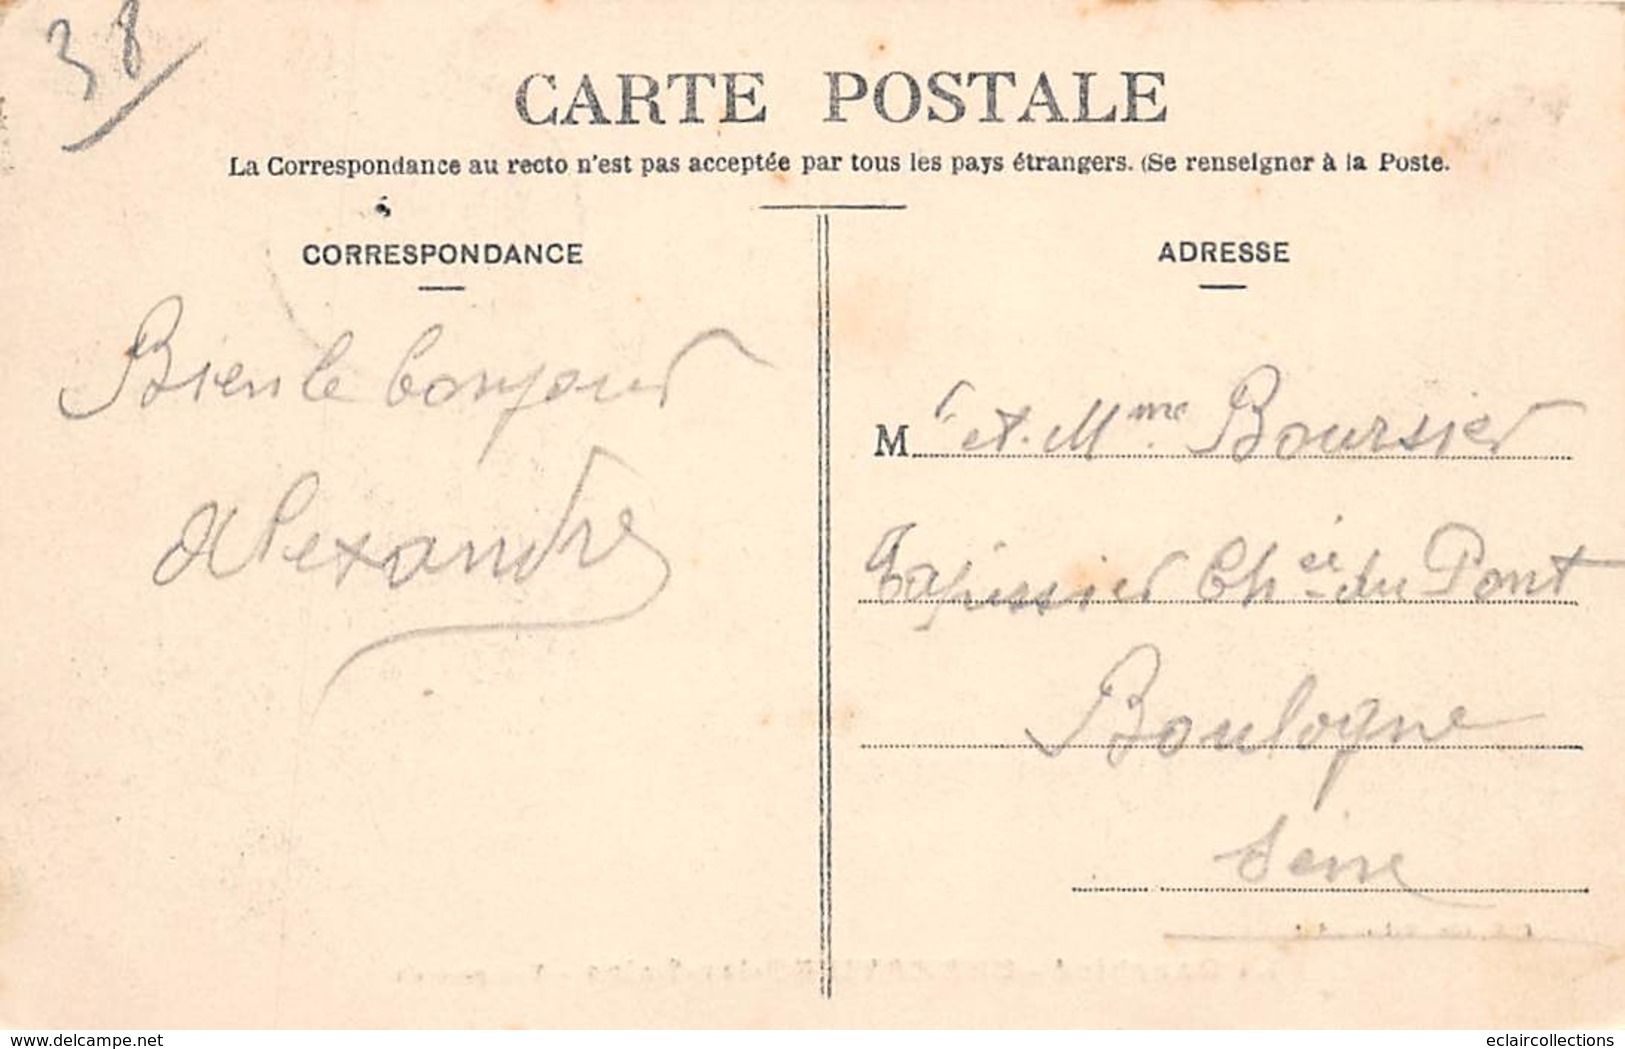 38
CARTE POSTALE
La Correspondance au recto n'est pas acceptée par tous les pays étrangers. (Se renseigner à la Poste.
CORRESPONDANCE
Bien le bonjour
Alexandre
ADRESSE
M r et Mme Boursier
Tapissier Ch ée du Pont
Boulogne
Seine
www.delcampe.net
eclaircollections